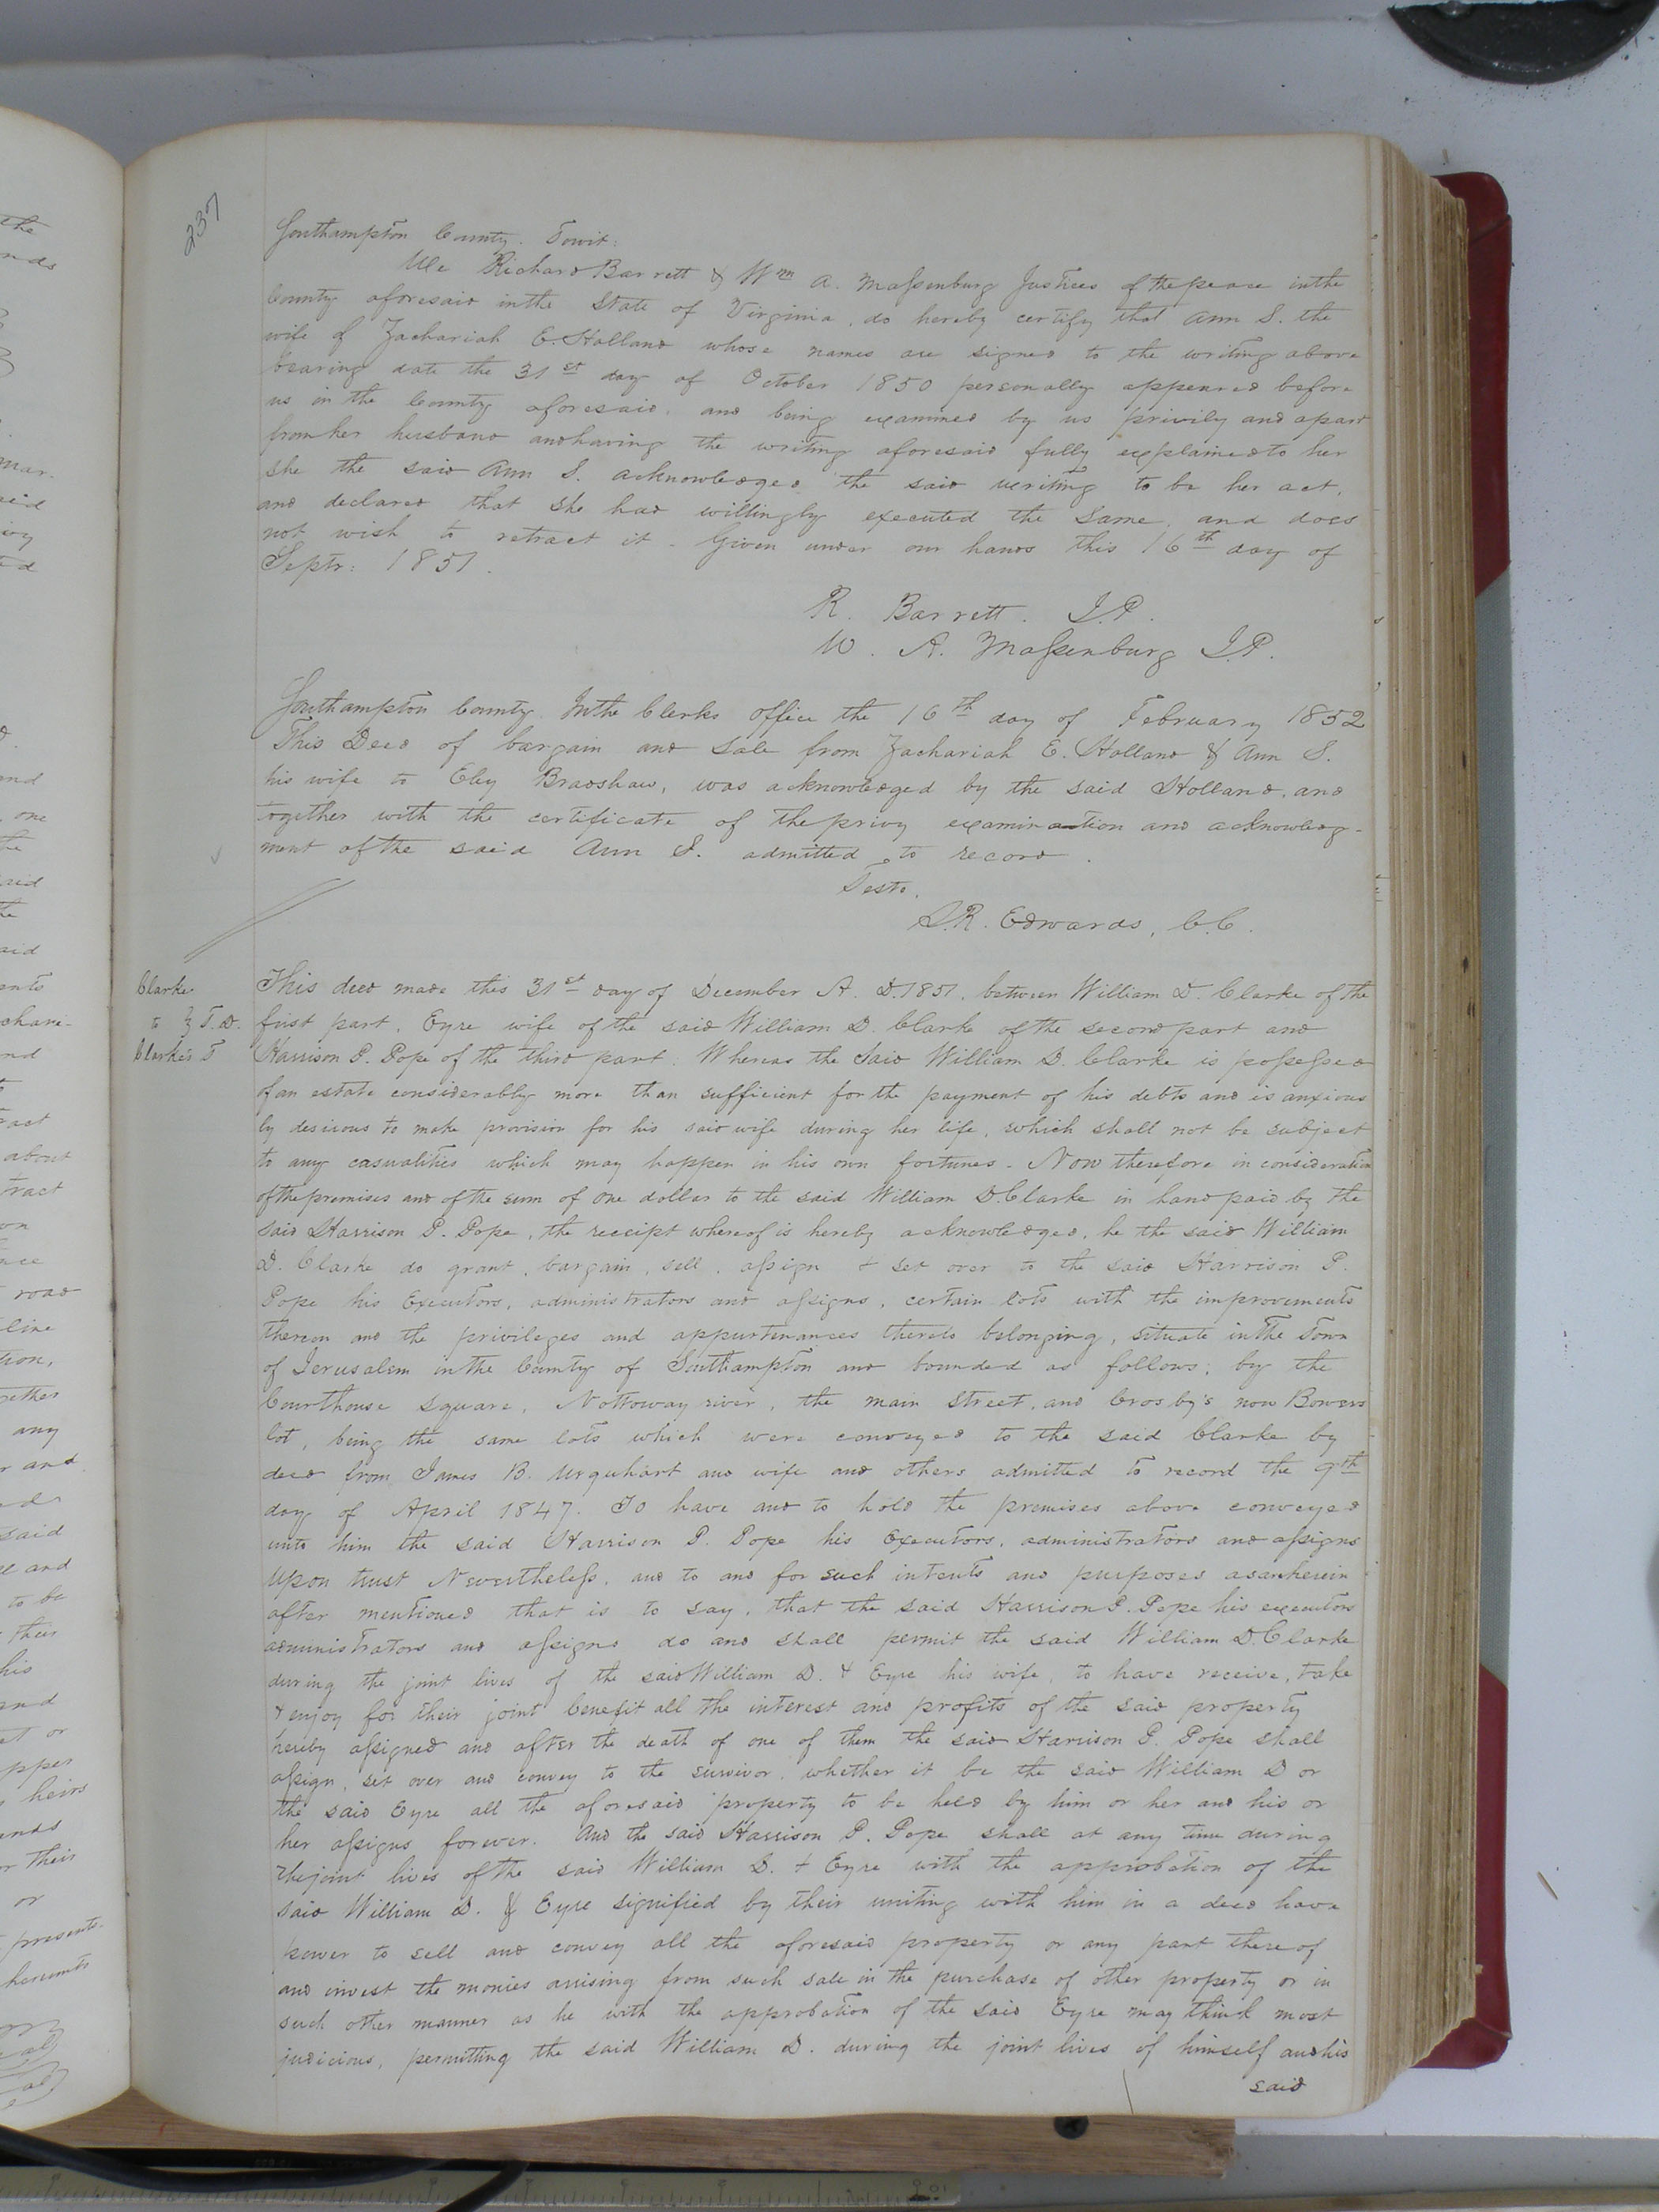 237
Southampton County. Towit:
We Richard Barrett & Wm A. Massenburg Justices of the peace in the
County aforesaid in the State of Virginia, do hereby certify that Ann S. the
wife of Zachariah E. Holland whose names are signed to the writing above
bearing date the 31st day of October 1850 personally appeared before
us in the County aforesaid, and being examined by us privily and apart
from her husband and having the writing aforesaid fully explained to her
she the said Ann S. acknowledged the said writing to be her act,
and declared that she had willingly executed the same, and does
not wish to retract it. Given under our hands this 16th day of
Septr: 1851.
R. Barrett. J.P.
W. A. Massenburg J.P.
Southampton County In the Clerks office the 16th day of February 1852
This Deed of bargain and sale from Zachariah E. Holland & Ann S.
his wife to Eley Bradshaw, was acknowledged by the said Holland, and
together with the certificate of the privy examination and acknowledg-
ment of the said Ann S. admitted to record.
Teste.
L.R. Edwards, C.C.
Clarke
to } T.D.
Clarke's T
This deed made this 31st day of December A. D. 1851, between William D. Clarke of the
first part, Eyre wife of the said William D. Clarke of the second part and
Harrison P. Pope of the third part. Whereas the said William D. Clarke is possessed
of an estate considerably more than sufficient for the payment of his debts and is anxious
ly desirous to make provision for his said wife during her life, which shall not be subject
to any casualities which may happen in his own fortunes. Now therefore in consideration
of the premises and of the sum of one dollar to the said William D Clarke in hand paid by the
said Harrison P. Pope, the receipt whereof is hereby acknowledged, he the said William
D. Clarke do grant, bargain, sell, assign & set over to the said Harrison P.
Pope his Executors, administrators and assigns, certain lots with the improvements
thereon and the privileges and appurtenances thereto belonging, situate in the Town
of Jerusalem in the County of Southampton and bounded as follows; by the
Courthouse square, Nottoway river, the main street, and Crosby's now Bowers
lot, being the same lots which were conveyed to the said Clarke by
deed from James B. Urquhart and wife and others admitted to record the 9th
day of April 1847. To have and to hold the premises above conveyed
unto him the said Harrison P. Pope his Executors, administrators and assigns
upon trust Nevertheless, and to and for such intents and purposes as are herein
after mentioned that is to say, that the said Harrison P. Pope his executors
administrators and assigns do and shall permit the said William D. Clarke
during the joint lives of the said William D. & Eyre his wife, to have receive, take
& enjoy for their joint benefit all the interest and profits of the said property
hereby assigned and after the death of one of them the said Harrison P. Pope shall
assign, set over and convey to the survivor, whether it be the said William D or
the said Eyre all the aforesaid property to be held by him or her and his or
her assigns forever. And the said Harrison P. Pope shall at any time during
the joint lives of the said William D. & Eyre with the approbation of the
said William D. & Eyre signified by their uniting with him in a deed have
power to sell and convey all the aforesaid property or any part thereof
and invest the monies arising from such sale in the purchase of other property or in
such other manner as he with the approbation of the said Eyre may think most
judicious, permitting the said William D. during the joint lives of himself and his
said